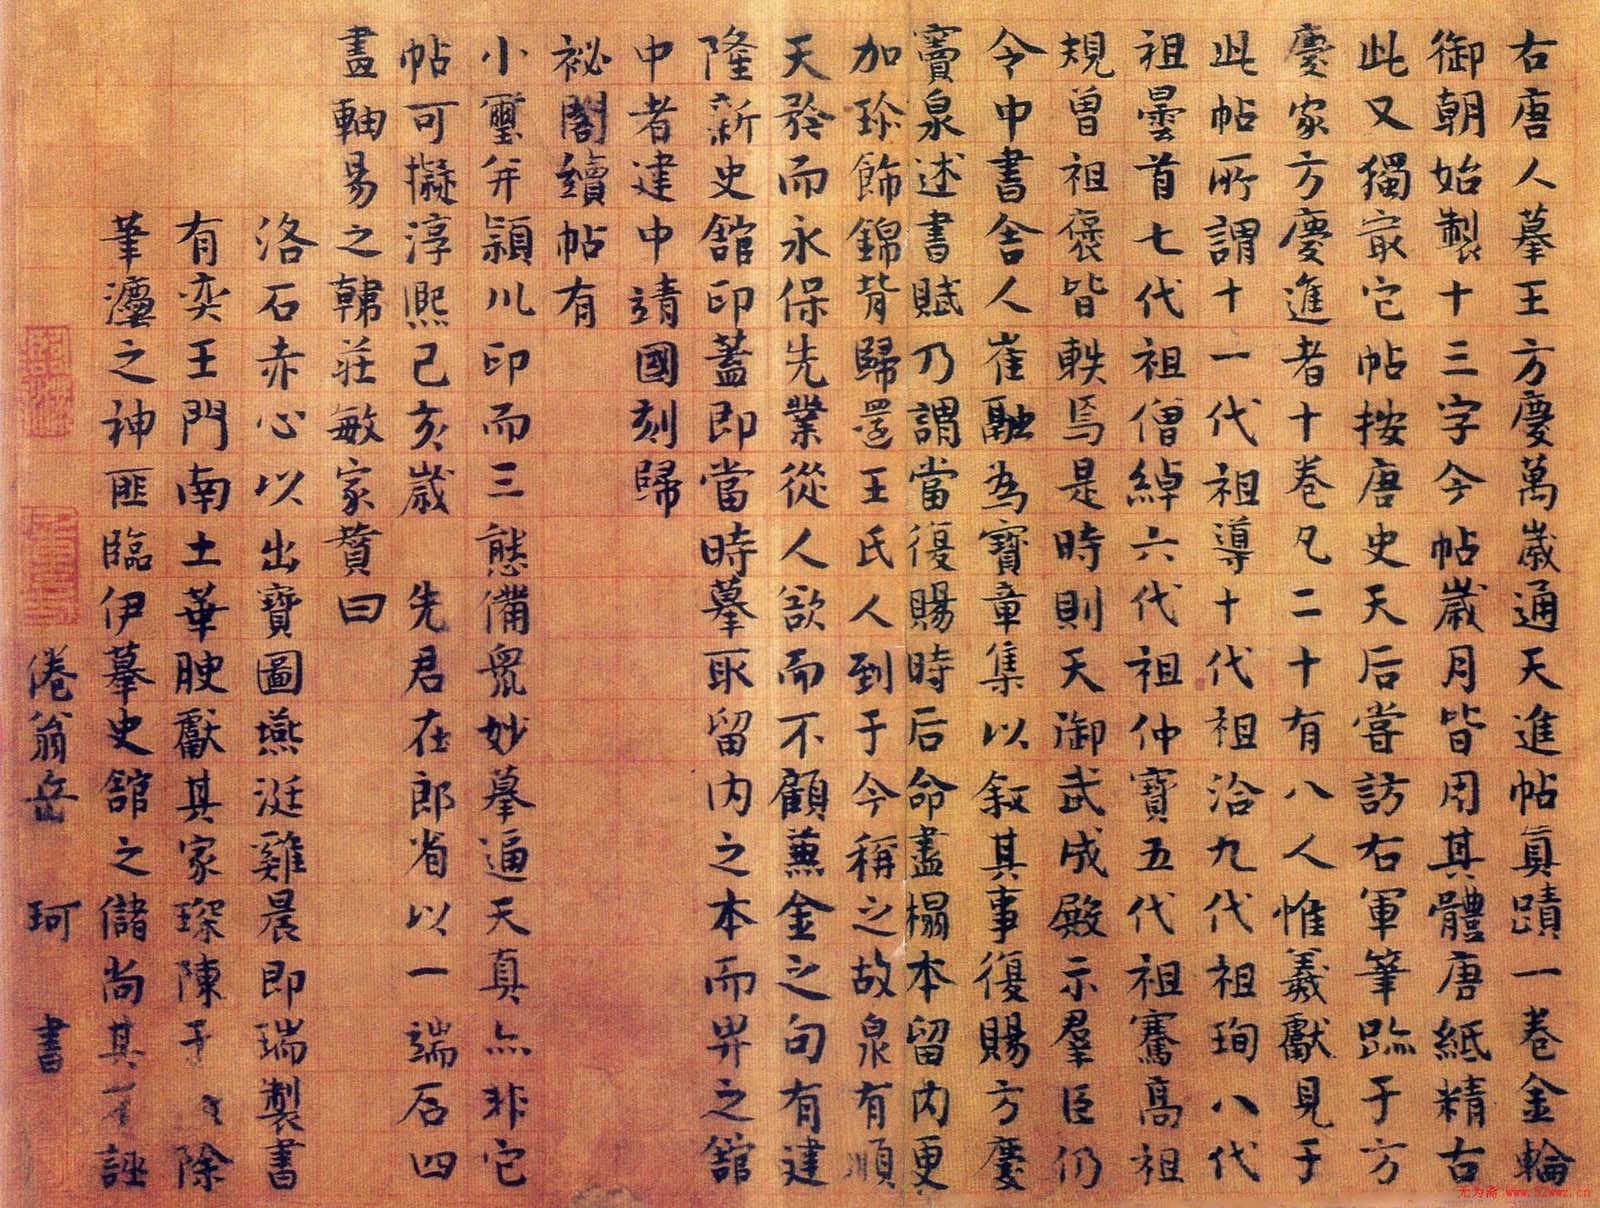 右唐人摹王方慶萬歲通天進帖真蹟一卷金輪
御朝始製十三字今帖歲月皆用其體唐紙精古
此又獨冣它帖按唐史天后嘗訪右軍筆跡于方
慶家方慶進者十卷凡二十有八人惟羲獻見于
此帖所謂十一代祖導十代祖洽九代祖珣八代
祖曇首七代祖僧綽六代祖仲寶五代祖騫高祖
規曾祖褒皆軼焉是時則天御武成殿示羣臣仍
令中書舍人崔融為寶章集以叙其事復賜方慶
竇泉述書賦乃謂當復賜時后命盡榻本留內更
加珍飾錦背歸還王氏人到于今稱之故泉有順
天矜而永保先業從人欲而不顧兼金之句有建
隆新史館印蓋即當時摹取留內之本而畀之館
中者建中靖國刻歸
祕閣續帖有
小璽并潁川印而三態備衆妙摹逼天真亦非它
帖可擬淳熙己亥歲 先君在郎省以一端石四
畫軸易之韓莊敏家贊曰
洛石赤心以出寶圖燕涎雞晨即瑞製書
有奕王門南土華腴獻其家琛陳于 除
筆灋之神匪臨伊摹史館之儲尚其不誣
倦翁岳 珂 書
无为斋 www.52wwz.cn